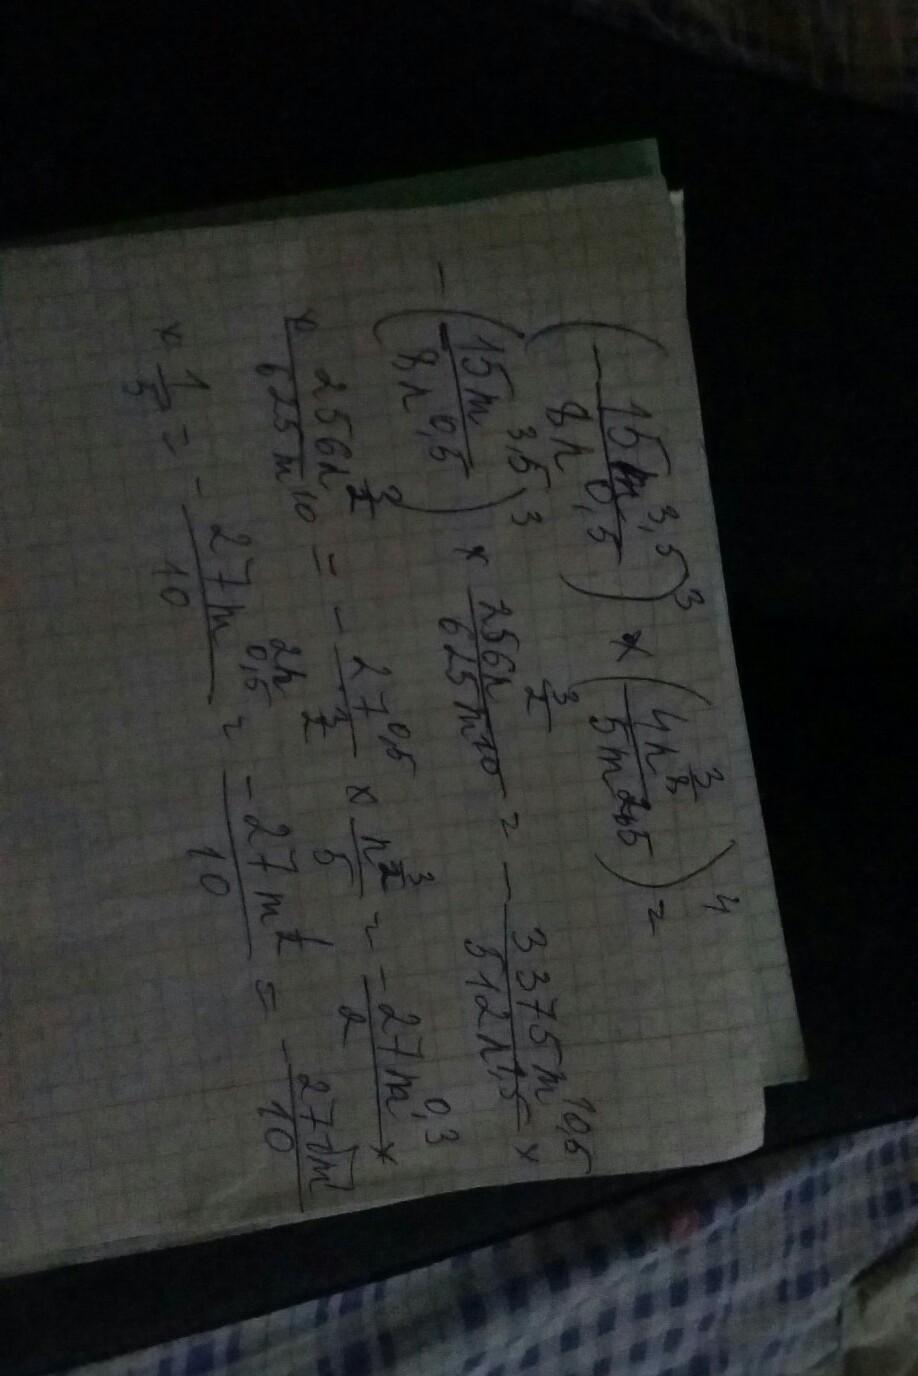 (- 15m^3,5 / 8n^0,5)^3 × (4n^(3/8) / 5m^2,5)^4 =
- (15m^3,5 / 8n^0,5)^3 × 256n^(3/2) / 625m^10 = - 3375m^10,5 / 512n^1,5 ×
× 256n^(3/2) / 625m^10 = - 27^0,5 / 2n^(3/2) × n^(3/2) / 5 = - 27m^0,3 / 2 ×
× 1/5 = - 27m^0,5 / 10 = - 27m^(1/2) / 10 = - 27√m / 10